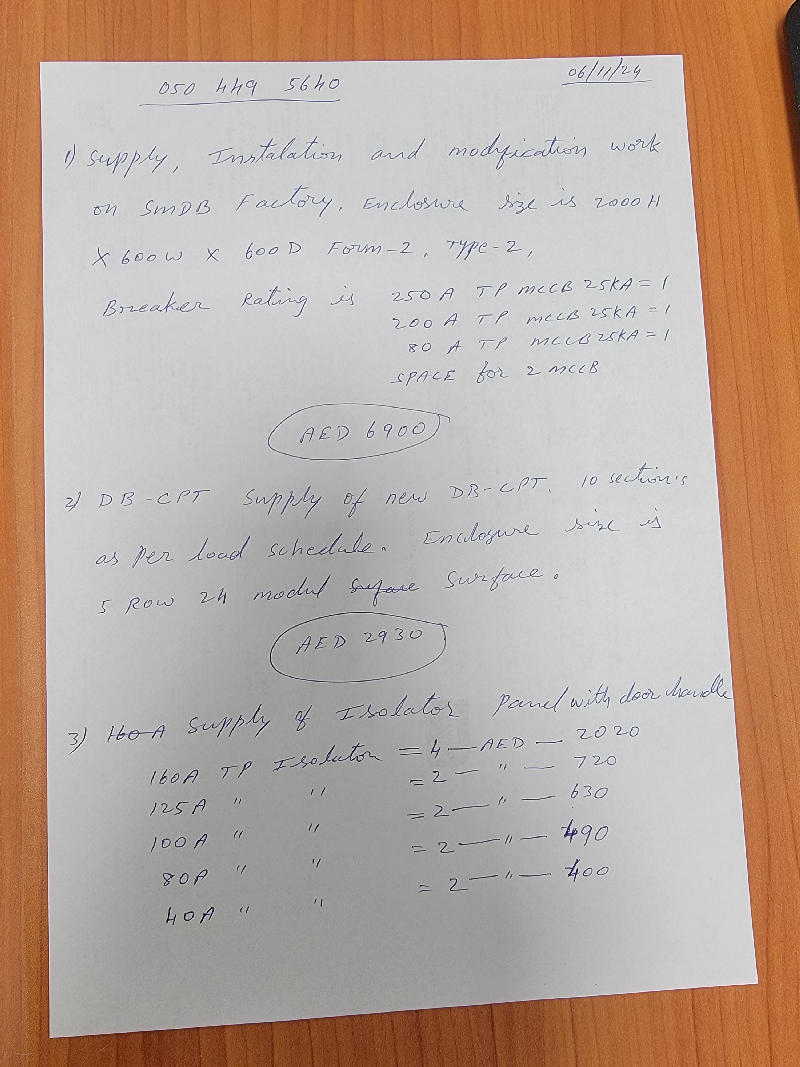 050 449 5640
06/11/24
1) Supply, Instalation and modification work
on SMDB Factory. Enclosure size is 2000H
X 600W X 600D Form-2, Type-2,
Breaker Rating is 250A TP MCCB 25KA = 1
200 A TP MCCB 25KA = 1
80 A TP MCCB 25KA = 1
SPACE for 2 MCCB
AED 6900
2) DB-CPT Supply of new DB-CPT. 10 section's
as per load schedule. Enclosure size is
5 Row 24 modul Surface.
AED 2930
3) 160A Supply of Isolator Panel with door handle
160A TP Isolator = 4 — AED — 2020
125A " " = 2 — " — 720
100A " " = 2 — " — 630
80A " " = 2 — " — 490
40A " " = 2 — " — 400